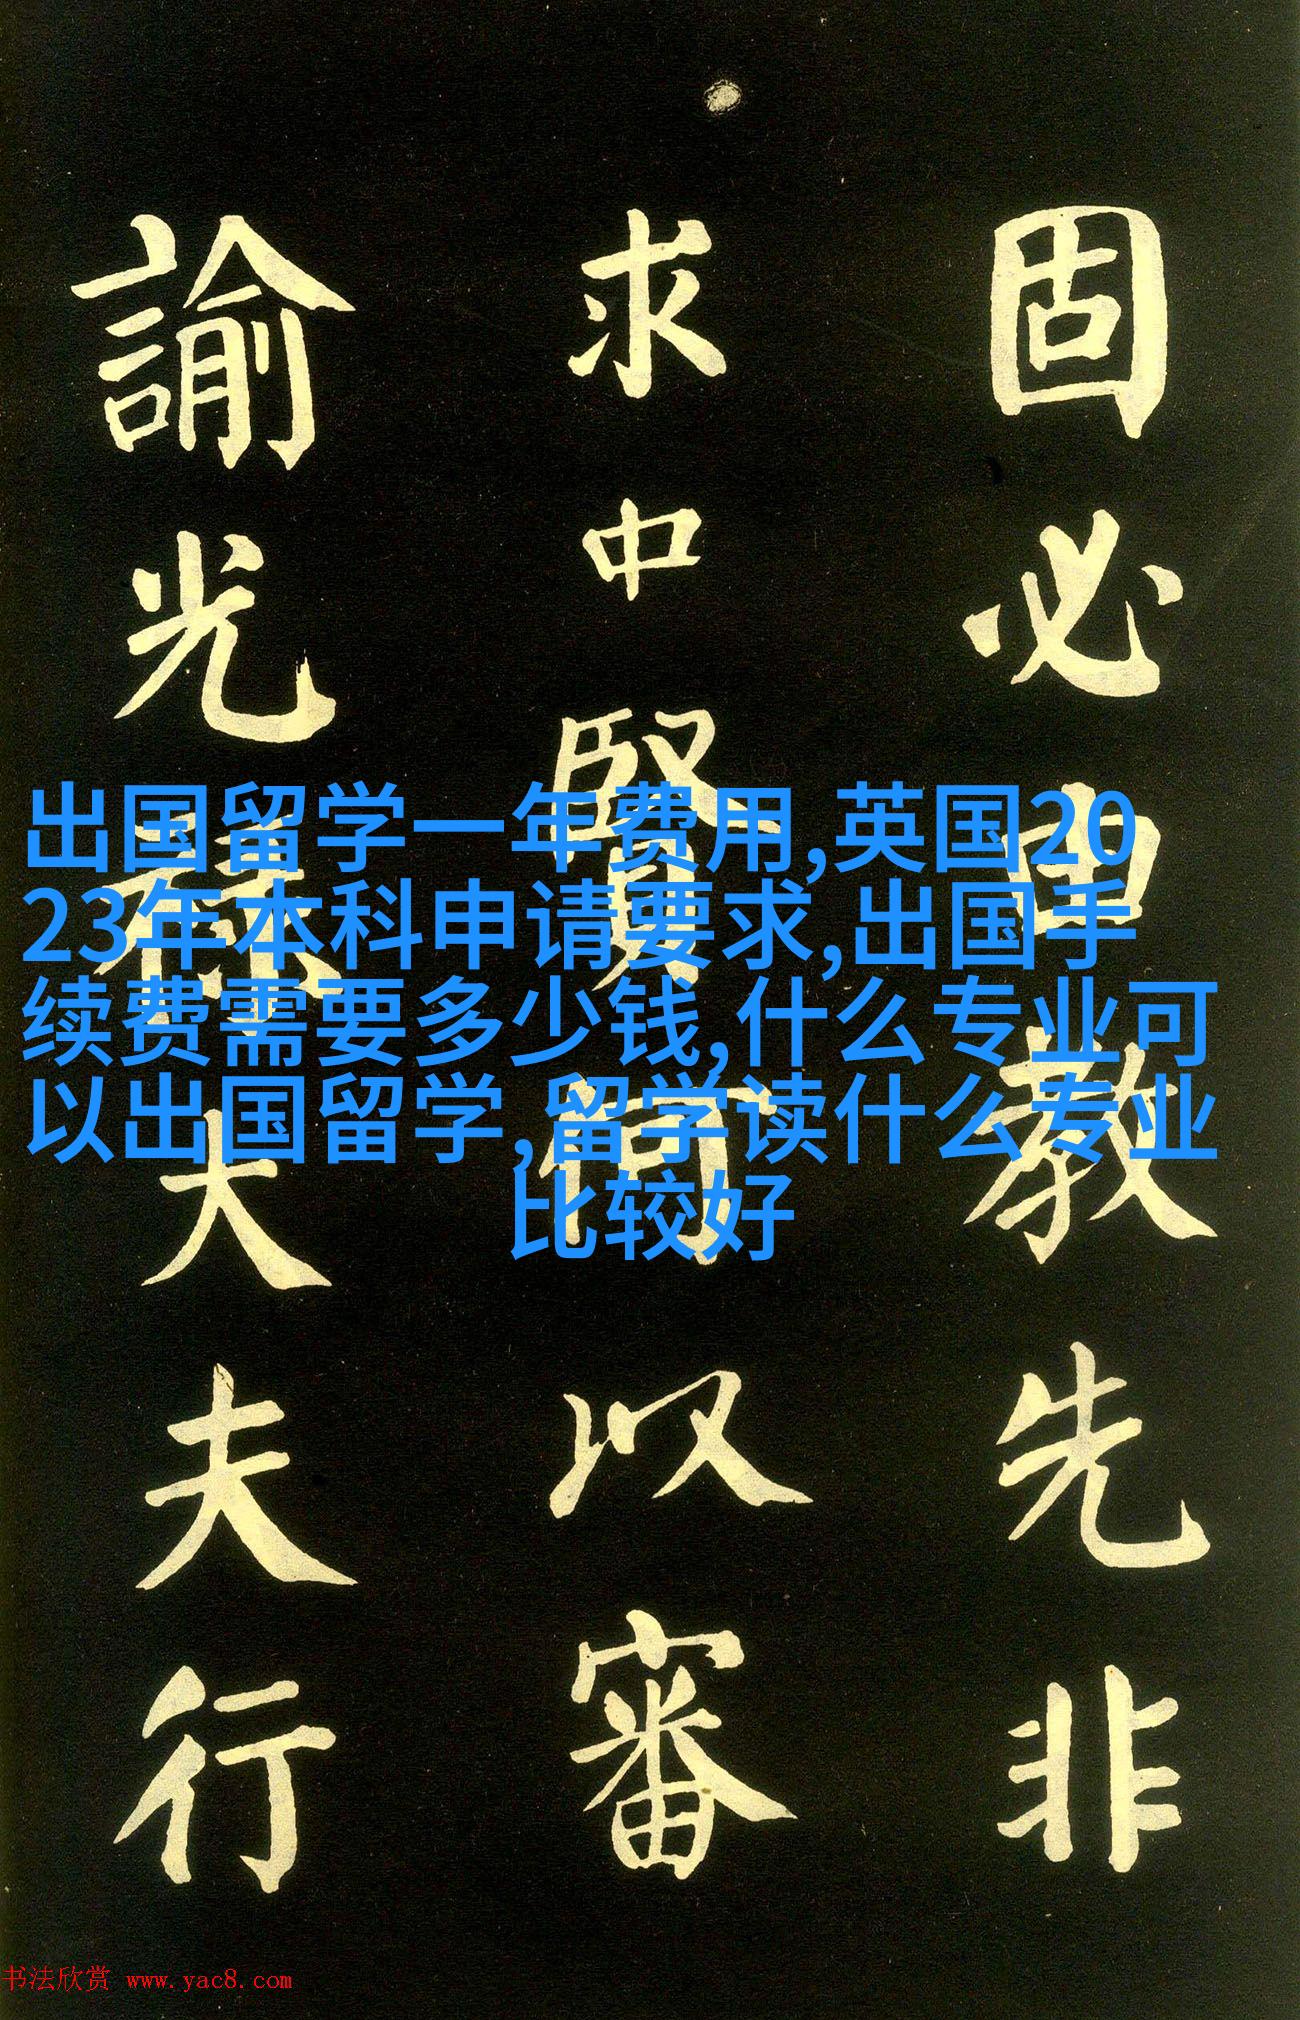 固必由教先非
求中賢何以審
諭光祿大夫行
出国留学一年费用,英国20
23年本科申请要求,出国手
续费需要多少钱,什么专业可
以出国留学,留学读什么专业
比较好
书法欣赏 www.yac8.com